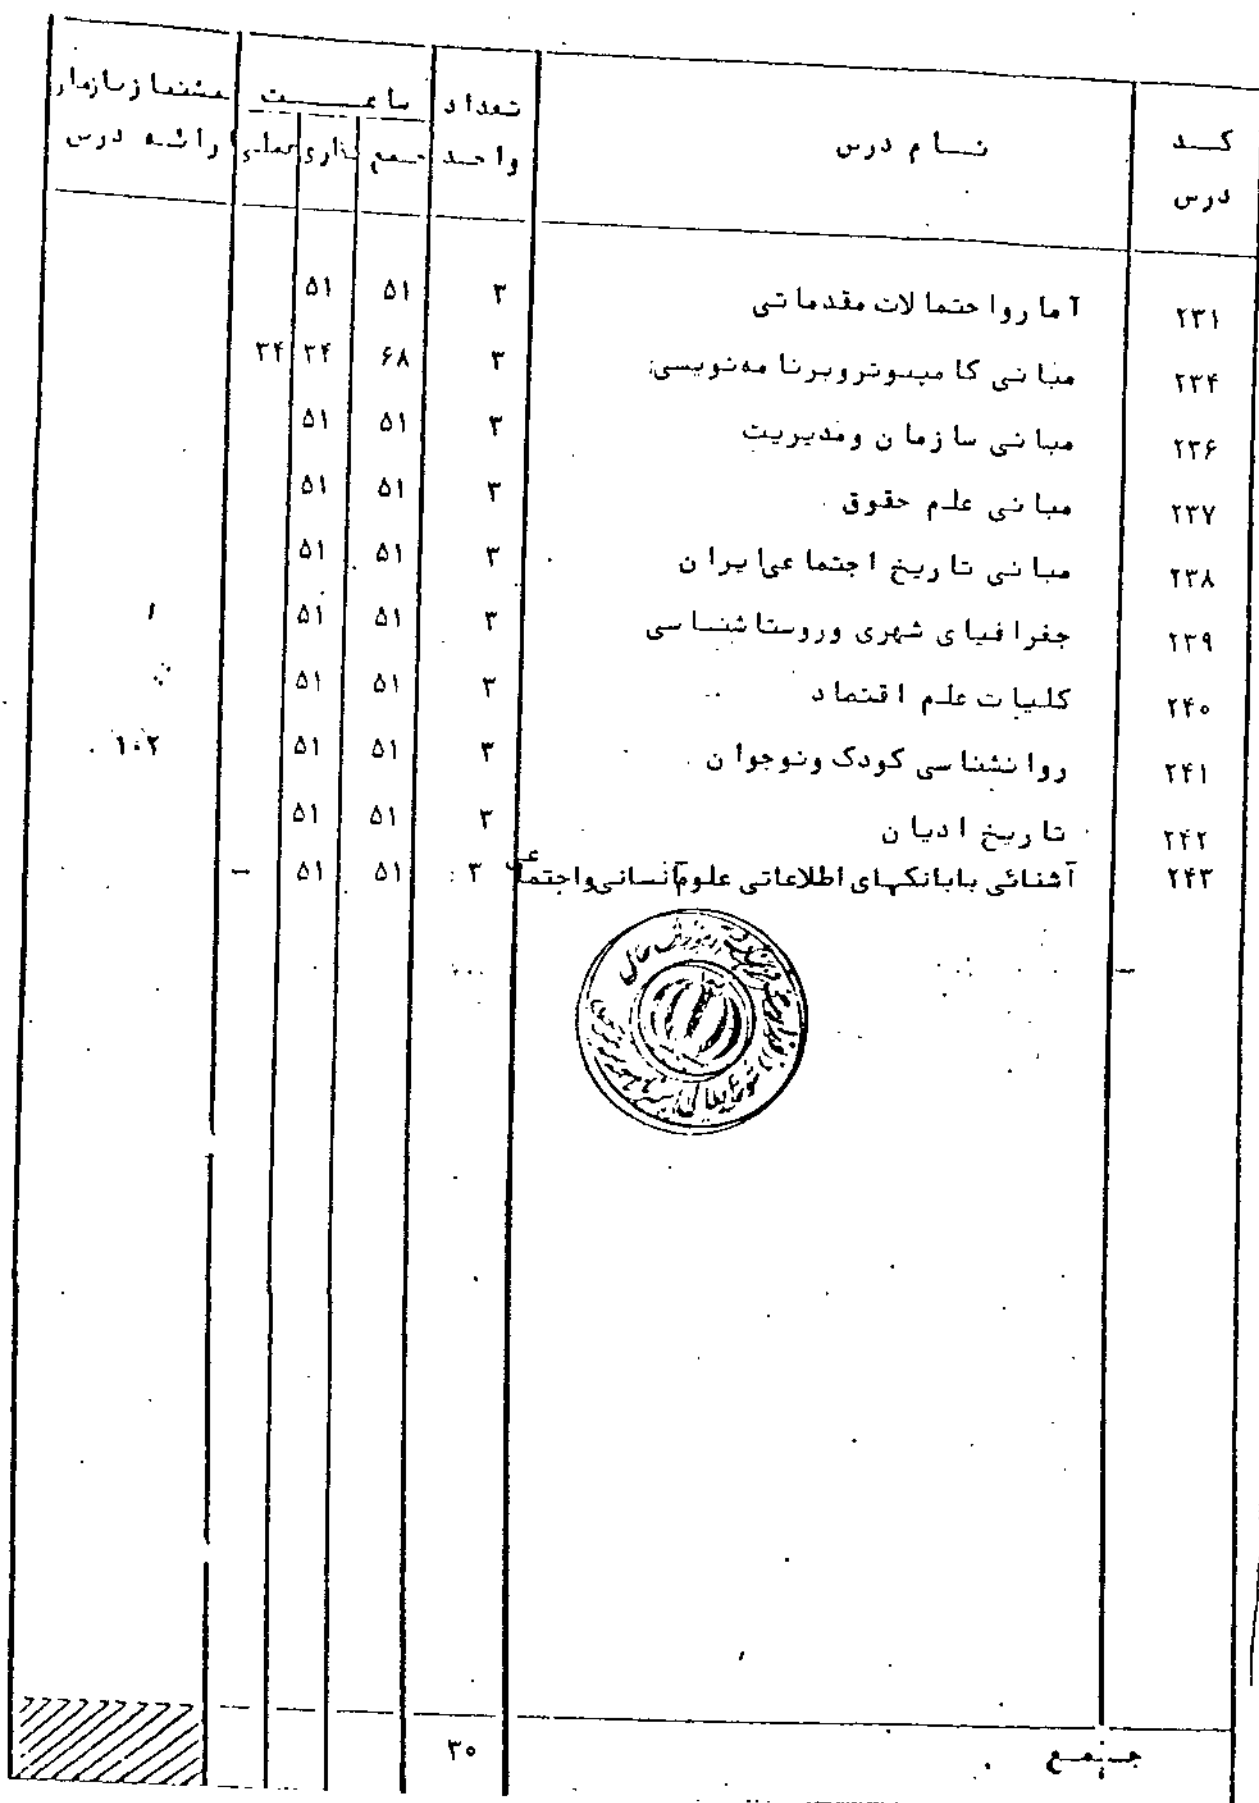 کد درس نام درس تعداد واحد ساعت جمع نظری عملی پیشنیاز یا زمان ارائه درس
۲۳۱ آمار و احتمالات مقدماتی ۳ ۵۱ ۵۱
۲۳۴ مبانی کامپیوتر و برنامه‌نویسی ۳ ۶۸ ۳۴ ۳۴
۲۳۶ مبانی سازمان و مدیریت ۳ ۵۱ ۵۱
۲۳۷ مبانی علم حقوق ۳ ۵۱ ۵۱
۲۳۸ مبانی تاریخ اجتماعی ایران ۳ ۵۱ ۵۱
۲۳۹ جغرافیای شهری و روستا شناسی ۳ ۵۱ ۵۱
۲۴۰ کلیات علم اقتصاد ۳ ۵۱ ۵۱
۲۴۱ روانشناسی کودک و نوجوان ۳ ۵۱ ۵۱ ۱۰۲
۲۴۲ تاریخ ادیان ۳ ۵۱ ۵۱
۲۴۳ آشنائی با بانکهای اطلاعاتی علوم انسانی و اجتماعی ۳ ۵۱ ۵۱ –
جمع ۳۰